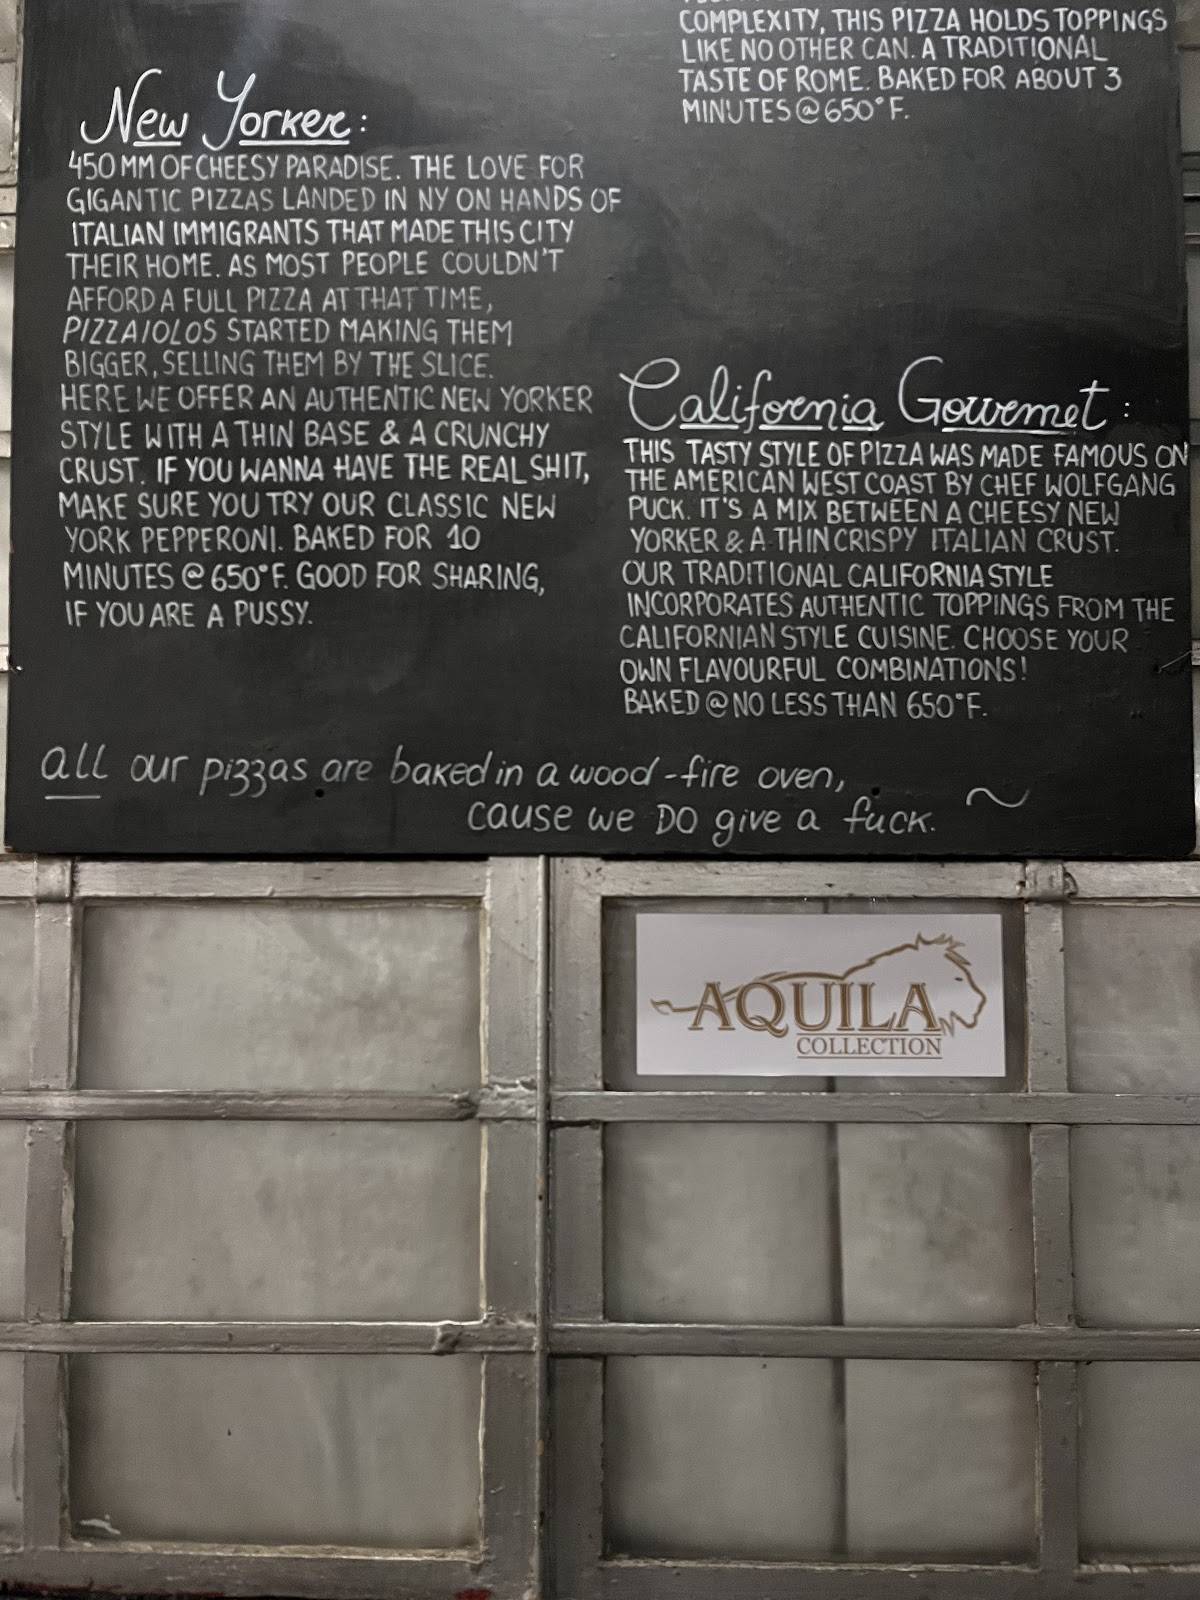 COMPLEXITY, THIS PIZZA HOLDS TOPPINGS
LIKE NO OTHER CAN. A TRADITIONAL
TASTE OF ROME. BAKED FOR ABOUT 3
MINUTES @ 650°F.
New Yorker:
450 MM OF CHEESY PARADISE. THE LOVE FOR
GIGANTIC PIZZAS LANDED IN NY ON HANDS OF
ITALIAN IMMIGRANTS THAT MADE THIS CITY
THEIR HOME. AS MOST PEOPLE COULDN'T
AFFORD A FULL PIZZA AT THAT TIME,
PIZZAIOLOS STARTED MAKING THEM
BIGGER, SELLING THEM BY THE SLICE.
HERE WE OFFER AN AUTHENTIC NEW YORKER
STYLE WITH A THIN BASE & A CRUNCHY
CRUST. IF YOU WANNA HAVE THE REAL SHIT,
MAKE SURE YOU TRY OUR CLASSIC NEW
YORK PEPPERONI. BAKED FOR 10
MINUTES @ 650°F. GOOD FOR SHARING,
IF YOU ARE A PUSSY.
California Gourmet:
THIS TASTY STYLE OF PIZZA WAS MADE FAMOUS ON
THE AMERICAN WEST COAST BY CHEF WOLFGANG
PUCK. IT'S A MIX BETWEEN A CHEESY NEW
YORKER & A THIN CRISPY ITALIAN CRUST.
OUR TRADITIONAL CALIFORNIA STYLE
INCORPORATES AUTHENTIC TOPPINGS FROM THE
CALIFORNIAN STYLE CUISINE. CHOOSE YOUR
OWN FLAVOURFUL COMBINATIONS!
BAKED @ NO LESS THAN 650°F.
all our pizzas are baked in a wood-fire oven,
cause we DO give a fuck. ~
AQUILA
COLLECTION